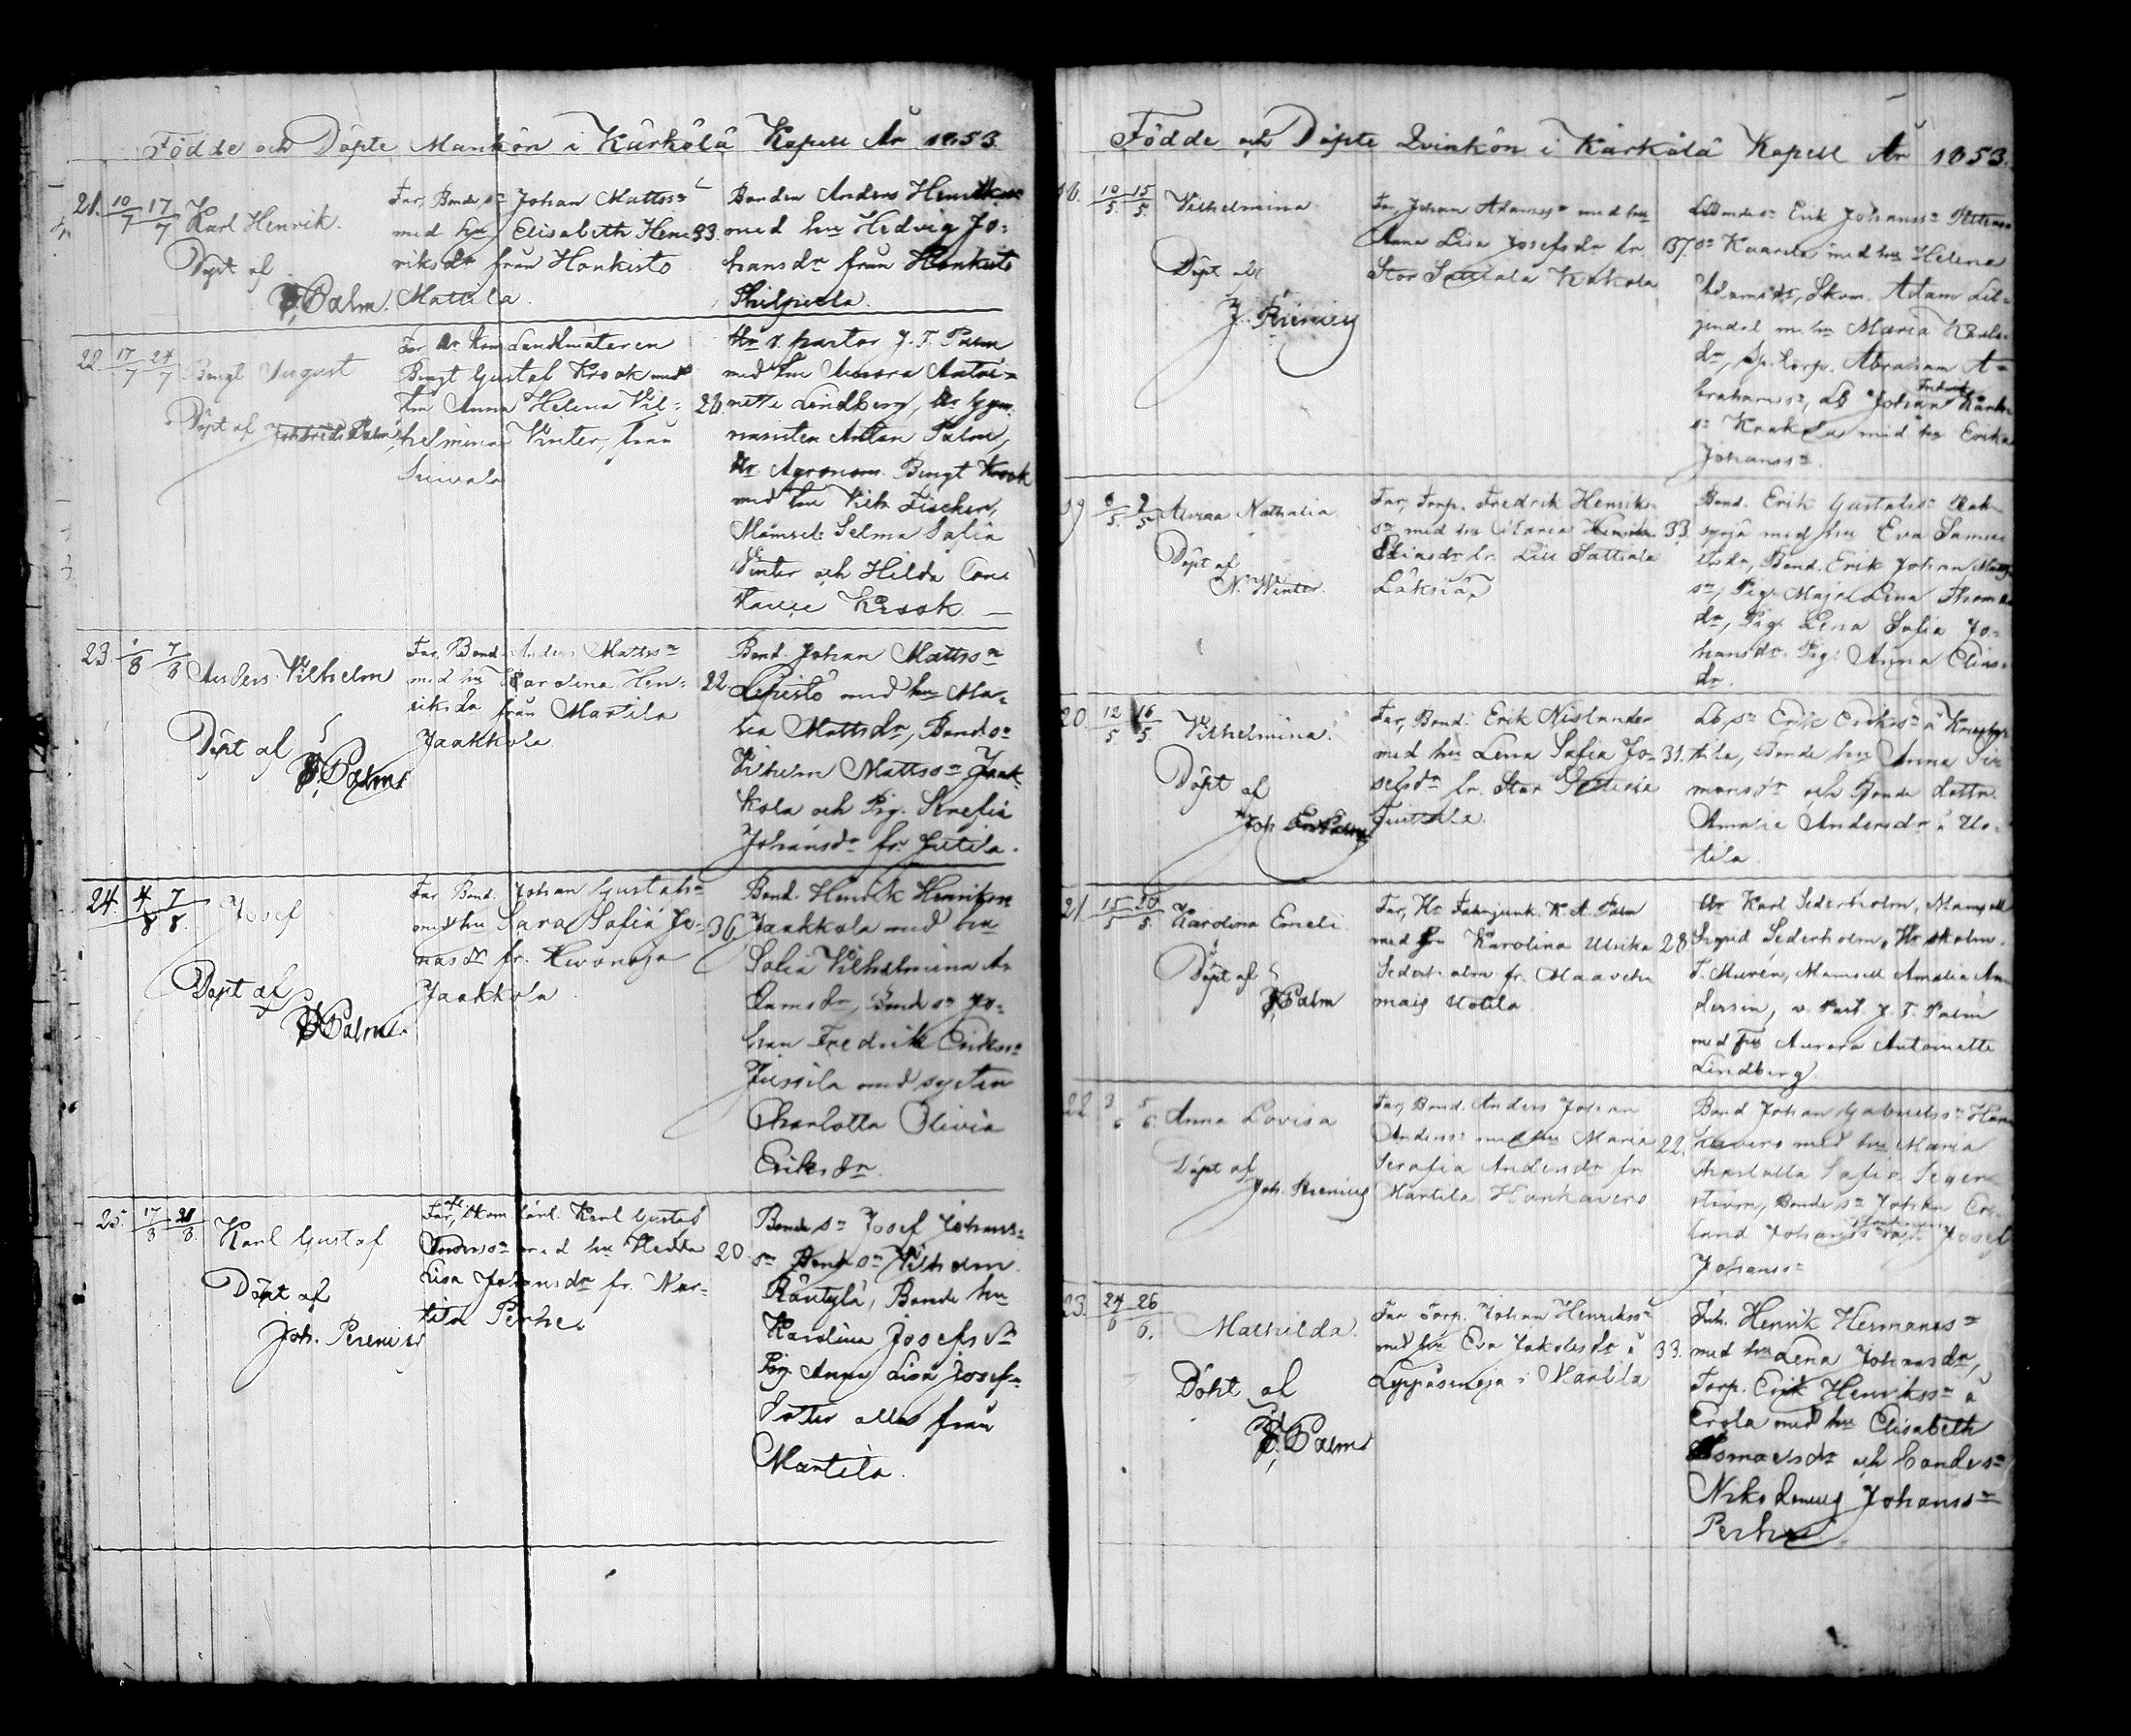 Födde och Döpte Mankön i Kärkölä Kapell År 1853.
21. 10/7 17/7 Karl Henrik.
Döpt af
Palm.
Far, Bonde sn Johan Mattssn
med hu Elisabeth Hen-
riksdr från Honkisto
Mattila.
33.
Bonden Anders Henrikssn
med hu Hedvig Jo-
hansdr från Honkisto
Philpuola.
22. 17/7 24/7 Bengt August
Döpt af
Far Hr Landtmätaren
Bengt Gustaf Krook med
fru Anna Helena Vil-
helmina Winter, från
26
Hr v. pastor J. F. Palm
med fru Aurora Antoi-
nette Lindberg, Hr Gym-
nasisten Anton Palm,
Hr Agronom Bengt Krook
med fru Vilh. Fischer,
Mamsel: Selma Sofia
Vinter och Hilda Con-
Krook.
23. 1/8 7/8 Anders Vilhelm
Döpt af
Palm
Far, Bond. Anders Mattssn
med hu Karolina Hen-
riksdr från Martila
Jaakkola.
22
Bond. Johan Mattssn
Lepistö med hu Ma-
ria Mattsdr, Bond. sn
Vilhelm Mattssn Jaak-
kola och Pig. Serafia
Johansdr fr. Jutila.
24. 4/8 7/8. Josef
Döpt af
Palm.
Far Bond. Johan Gustafssn
med hu Sara Sofia Jo-
nasdr fr. Hevonoja
Jaakkola
36
Bond. Henrik Henrikssn
Jaakkola med hu
Sofia Vilhelmina A-
damsdr, Bond sn Jo-
han Fredrik Erikssn
Jussila med systen
Charlotta Olivia
Eriksdr.
25. 17/8 21/8. Karl Gustaf
Döpt af
Joh. Perenius
Far, Karl Gustaf
Anderssn med hu Hedda
Lisa Johansdr fr. Mar-
tila Perhe.
20
Bonde sn Josef Johans-
sn Bond sn Vilhelm
Räntylä, Bonde hu
Karolina Josefsdr
Pig. Anna Lisa Josefs-
dotter alla från
Martila.
Födde och Döpte Qvinkön i Kärkölä Kapell År 1853.
18. 10/5. 15/5. Vilhelmina
Döpt af
J. Perenius
Far, Johan Adamssn med hu
Anna Lisa Josefsdr fr.
Stor Sattiala Kakola
37.
Erik Johanssn
med hu Helena
Adamsdr, Skom. Adam Lil-
jendal m. hu Maria
dr, Torp. Abraham A-
brahamssn, Johan Fredrik
med hu Erika
Johanss
19 6/5. 9/5 Alvina Nathalia.
Döpt af
N. Winter.
Far, Torp. Fredrik Henriks-
sn med hu Maria
Eliasdr fr. Lill Sattiala
Läksiä,
33.
Bond. Erik Gustafssn
med hu Eva Samu-
elsdr, Bond. Erik Johan
sn, Pig. Maja Lena Thomas
dr, Pig. Lena Sofia Jo-
hansdr. Pig. Anna Elias-
dr.
20. 12/5 16/5. Vilhelmina.
Döpt af
Joh.
Far, Bond. Erik Nislander
med hu Lena Sofia Jo-
sefsdr fr. Stor Sattiala
31.
sn Erik Erikssn å
Bonde hu Anna Si-
monsdr och Bonde dottr.
Amalie Andersdr i Uo-
tila.
21. 15/5 Karolina Emeli
Döpt af
Palm
Far, Hr Fanjunk. K. A. Palm
med fru Karolina Ulrika
Sederholm fr. Maaveh-
mais Uotila
28
Hr Karl Sederholm, Mamsell
Sigrid Sederholm,
T. Murén, Mamsell Amalia An-
dersin, v. Past. J. F. Palm
med fru Aurora Antoinette
Lindberg
22 3/6 5/6. Anna Lovisa
Döpt af
Joh. Perenius
Far, Bond. Anders Johan
Anderss med hu Maria
Serafia Andersdr fr
Martila Honkavero
22.
Bond Johan Gabrielssn Hon-
kavero med hu Maria
Charlotta Sofia Seger-
ström, Bonde sn Johan Er-
land Johanss Josef
Johanss
23. 24/6 26/6. Mathilda.
Döpt af
Palm
Far Torp. Johan Henrikssn
med hu Eva Jakobsdr å
i Martila
33.
Inh. Henrik Hermanssn
med hu Lena Johansdr,
Torp. Erik Henrikssn å
Erola med hu Elisabeth
Ismaelsdr och bonde sn
Nikodemus Johanssn
Perhe